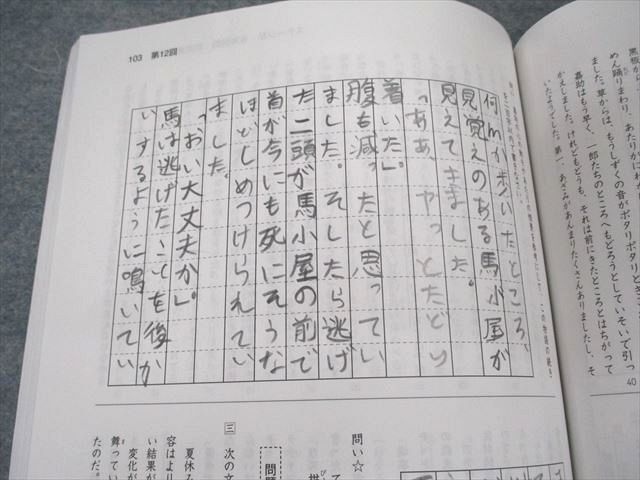 103 第12回
何mか歩いたところ、
見覚えのある馬小屋が
見えてきました。
「ああ、やっとたどり
着いた」
腹も減ったと思ってい
ました。そしたら逃げ
た二頭が馬小屋の前で
首が今にも死にそうな
ほどしめつけられてい
ました。
「おい大丈夫か」
馬は逃げたことを後か
いするように鳴いてい
黒板か
めん踊りまわり、あたりがにわ
ました。草からは、もうしずくの音がポタリポタリと
嘉助はもう早く、一郎たちのところへもどろうとしていそいで引っ
かえしました。けれどもどうも、それは前にきたところとはちがって
いたようでした。第一、あざみがあんまりたくさんありましたし、そ
40
問い☆
三 次の文
問題
夏休み
容はより
い結果が
変化が
舞ってい
たのだ。